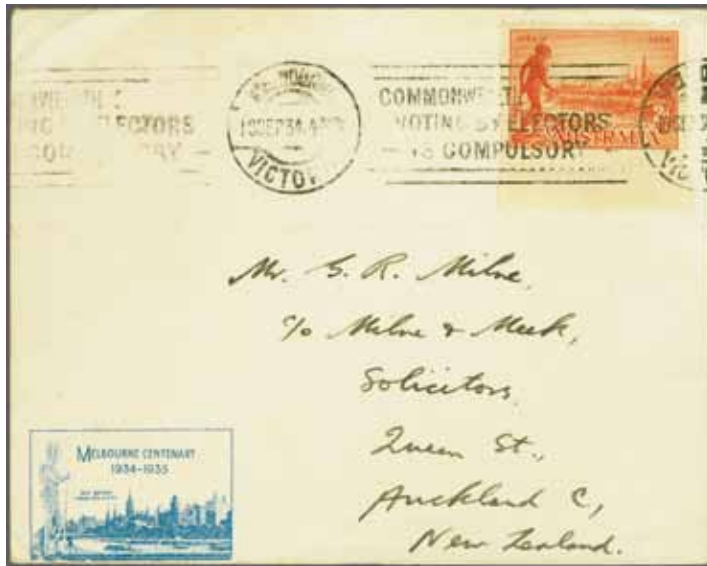 COMMONWEALTH
VOTING BY ELECTORS
IS COMPULSORY
MELBOURNE
19 SEP 34
VICTO
COMMONWEALTH
VOTING BY ELECTORS
IS COMPULSORY
AUSTRALIA
Mr. G. R. Milne,
c/o Milne & Meek,
Solicitors,
Queen St.,
Auckland C,
New Zealand.
MELBOURNE CENTENARY
1934-1935